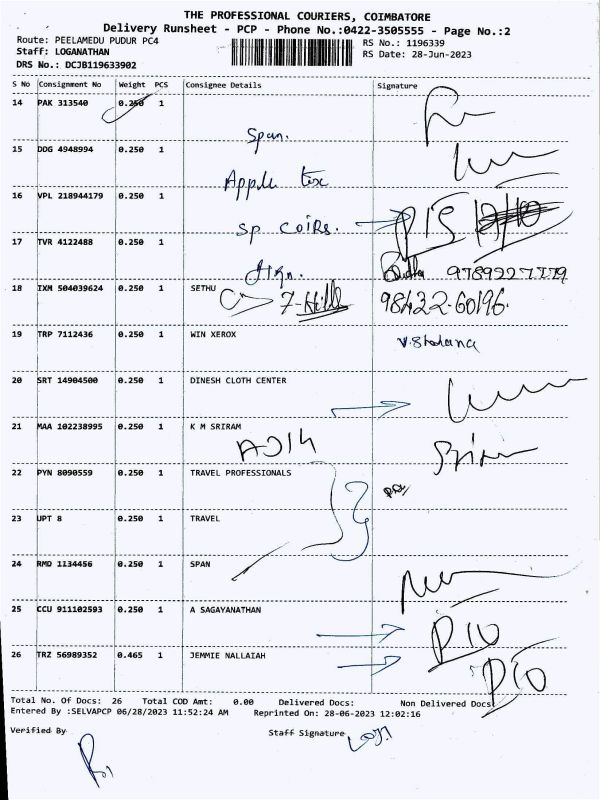 THE PROFESSIONAL COURIERS, COIMBATORE
Delivery Runsheet - PCP - Phone No.:0422-3505555 - Page No.:2
Route: PEELAMEDU PUDUR PC4 RS No.: 1196339
Staff: LOGANATHAN RS Date: 28-Jun-2023
DRS No.: DCJB119633902
S No Consignment No Weight PCS Consignee Details Signature
14 PAK 313540 0.250 1
Span.
15 DDG 4948994 0.250 1
Apple tex
16 VPL 218944179 0.250 1
sp coirs.
17 TVR 4122488 0.250 1
9789227779
18 IXM 504039624 0.250 1 SETHU
7-Hills 98422-60196.
19 TRP 7112436 0.250 1 WIN XEROX
20 SRT 14904500 0.250 1 DINESH CLOTH CENTER
21 MAA 102238995 0.250 1 K M SRIRAM
Sriram
22 PYN 8090559 0.250 1 TRAVEL PROFESSIONALS
23 UPT 8 0.250 1 TRAVEL
24 RMD 1134456 0.250 1 SPAN
25 CCU 911102593 0.250 1 A SAGAYANATHAN
26 TRZ 56989352 0.465 1 JEMMIE NALLAIAH
Total No. Of Docs: 26 Total COD Amt: 0.00 Delivered Docs: Non Delivered Docs
Entered By :SELVAPCP 06/28/2023 11:52:24 AM Reprinted On: 28-06-2023 12:02:16
Verified By Staff Signature